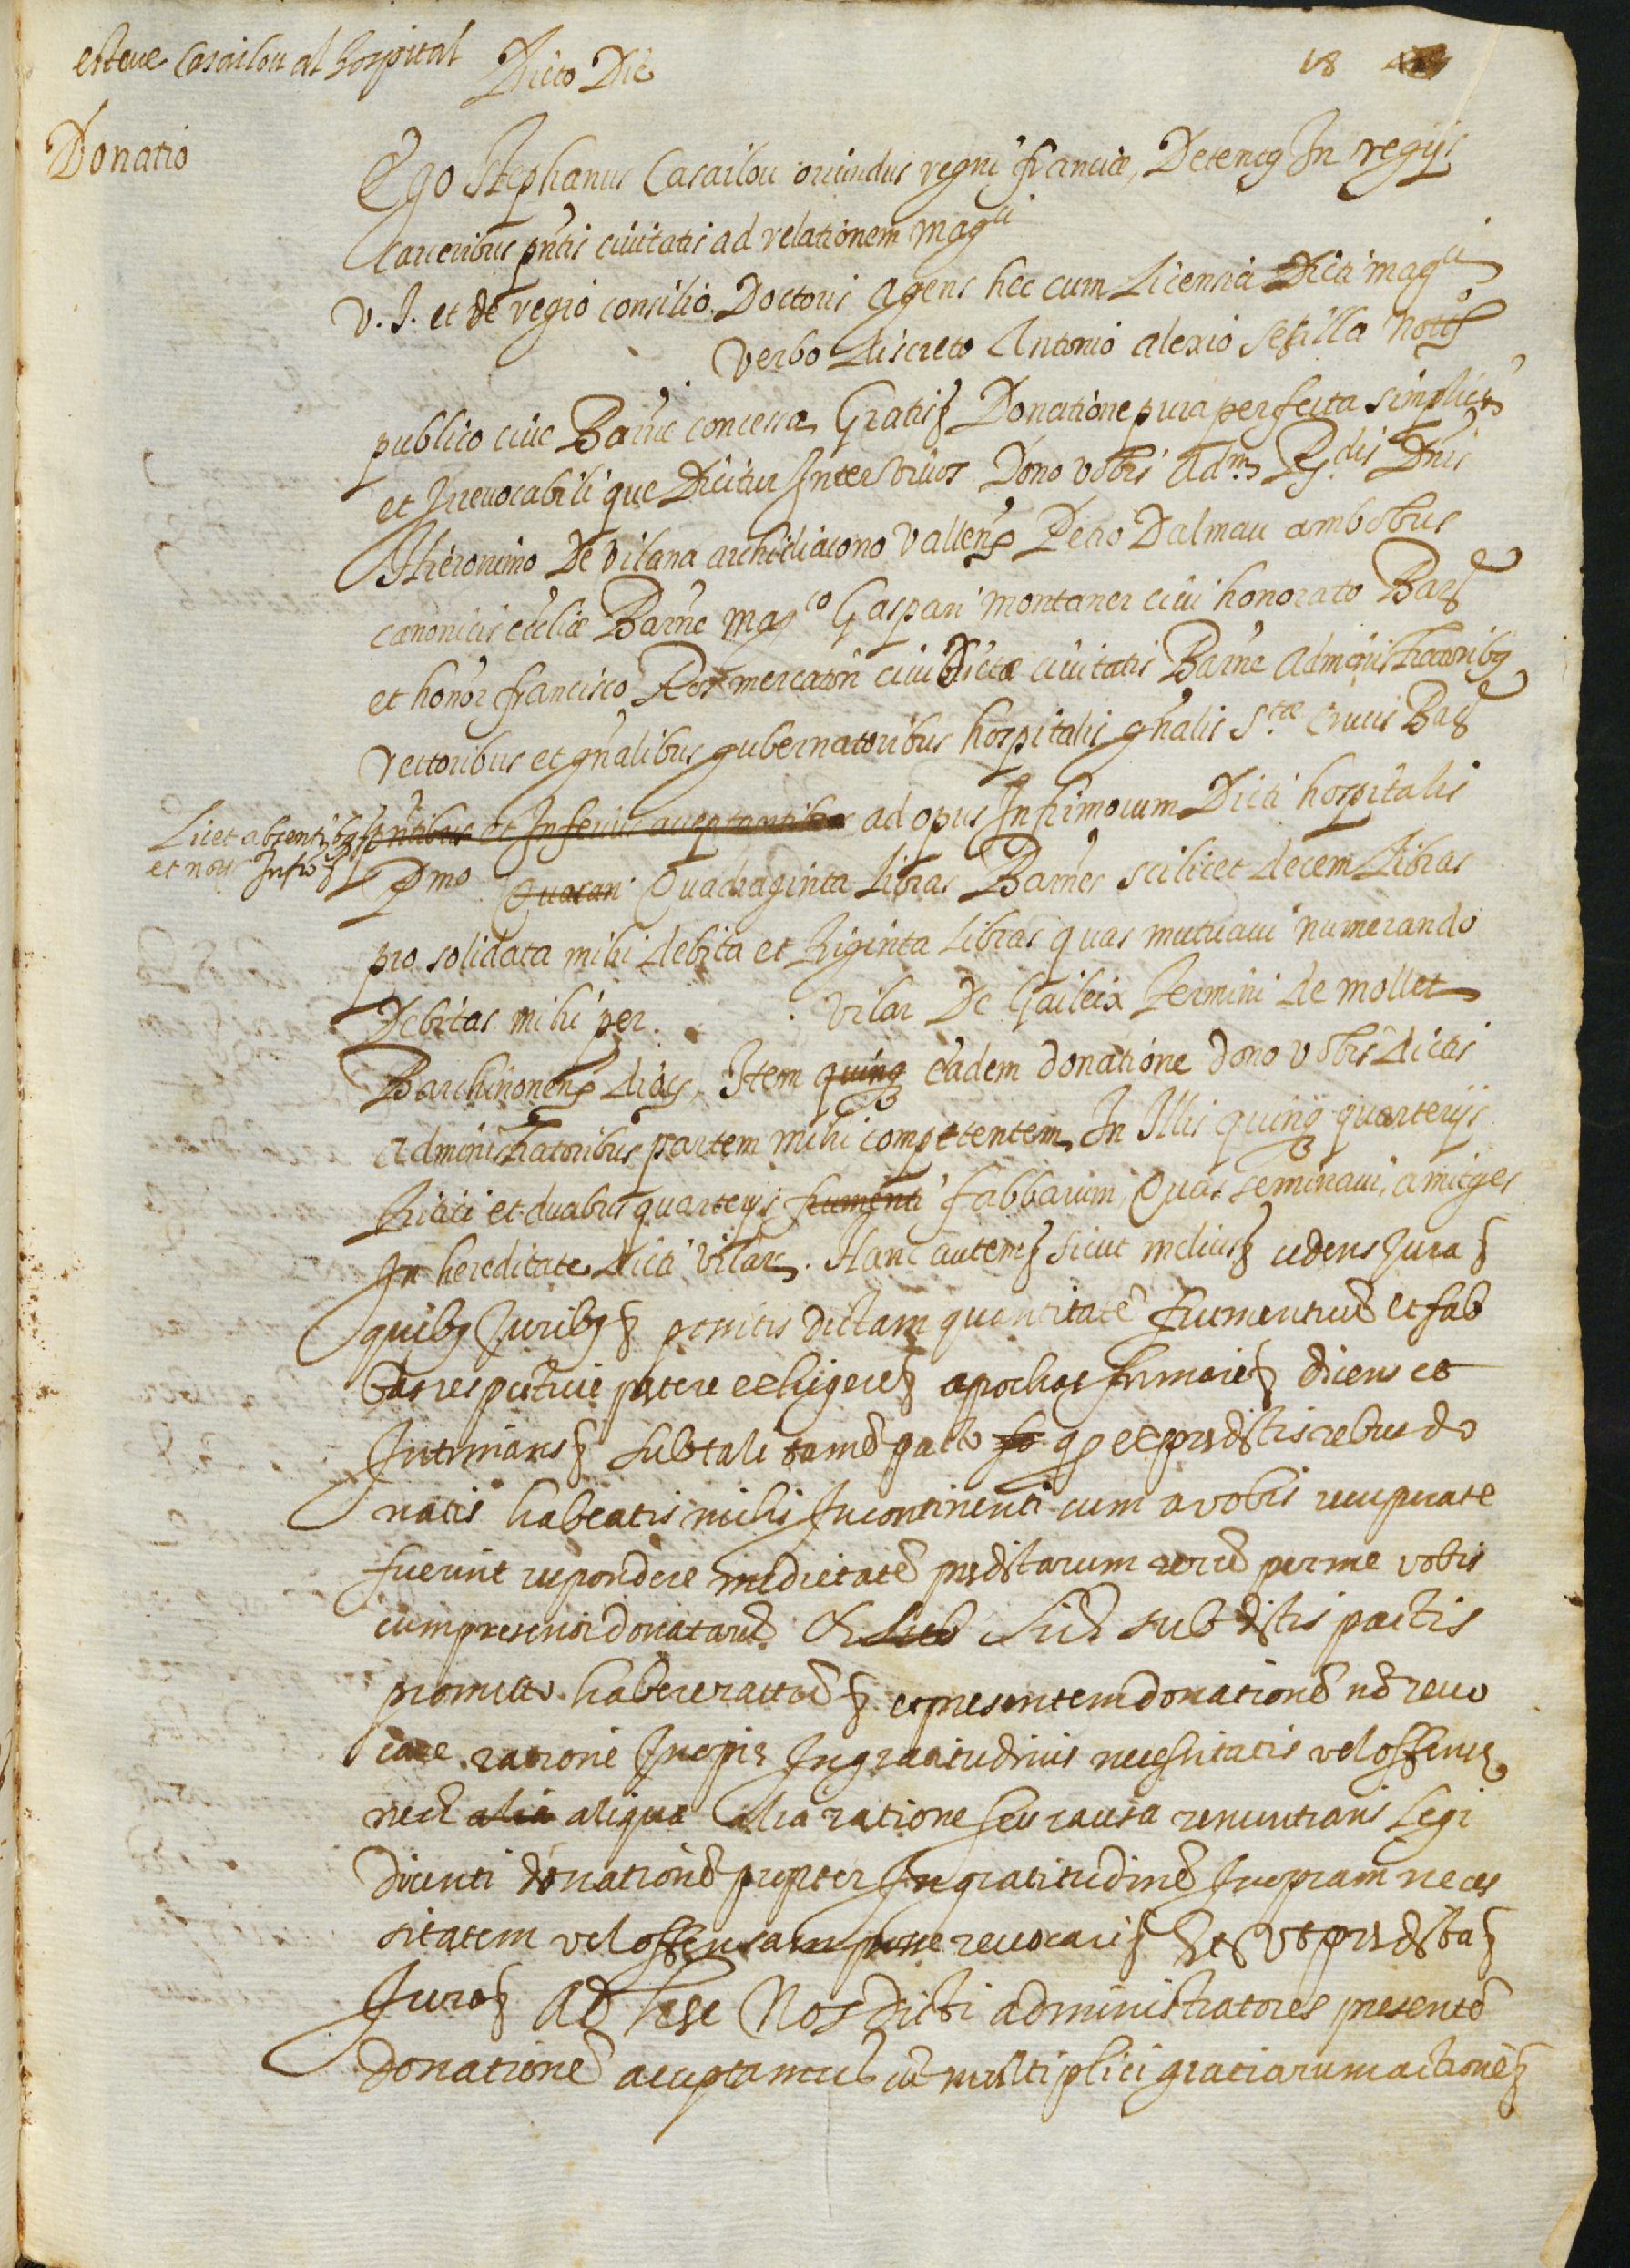 esteve Casailou al hospital
Dicto Die
18
Donatio
Ego Stephanus Casailou oriundus regni franciæ, Detentꝰ In regijs
carceribus pntis civitatis ad relationem magci
V. J. et de regio consilio Doctoris Agens hec cum Licentia Dicti magci
verbo discreto Antonio alexio
publico cive Barne concessa Gratis Donatione pura perfecta simplici
et Irrevocabili que Dicitur Inter vivos Dono vobis Adm Rdis Dnis
Hieronimo De vilana archidiacono Vallens Petro Dalmau ambobus
canonicis ecclie Barne Magco Gaspari montaner civi honorato Bar
et honor francisco Ros mercatori civi Dictæ civitatis Barne Administratoribꝰ
rectoribus et gnalibus gubernatoribus hospitalis gnalis Stæ Crucis Bar
Licet absentibꝰ pntibus et Inferius acceptantibus ad opus Infirmorum Dicti hospitalis
et nori Infro
Pmo Quaran Quadraginta Libras Barnes scilicet decem Libras
pro solidata mihi debita et triginta Libras quas mutuavi numerando
Debitas mihi per vilar De Gaileix Termini de mollet
Barchinonens dioc, Item quinq eadem donatione dono vobis dictis
administratoribus partem mihi competentem In Illis quinq quarterijs
tritici et duabus quarterijs frumenti fabbarum, Quas seminavi, amitges
In hereditate dicti vilar. Hanc autem sicut melius cedens Jura
quibꝰ Juribꝰ possitis dictam quantitate frumentum et fab
bas respective petere exhigere apochas firmare dicens et
Intimans sub tali tamen pacto q ex predictis rebus do
natis habeatis mihi Incontinenti cum a vobis recuperate
fuerint respondere medietate predictarum rerum per me vobis
cum presenti donatarum Et sub Sic sub dictis pactis
promitto habere ratum et presentem donatione no revo
care ratione Inopie Ingratitudinis necessitatis vel offense
nec alia aliqua alia ratione seu causa renuntians Legi
dicenti donatione propter Ingratitudine Inopiam neces
sitatem vel offensam posse revocari Et Ut predicta
Juro Ad hec Nos dicti administratores presente
donatione acceptamus cu multiplici gratiarum actione